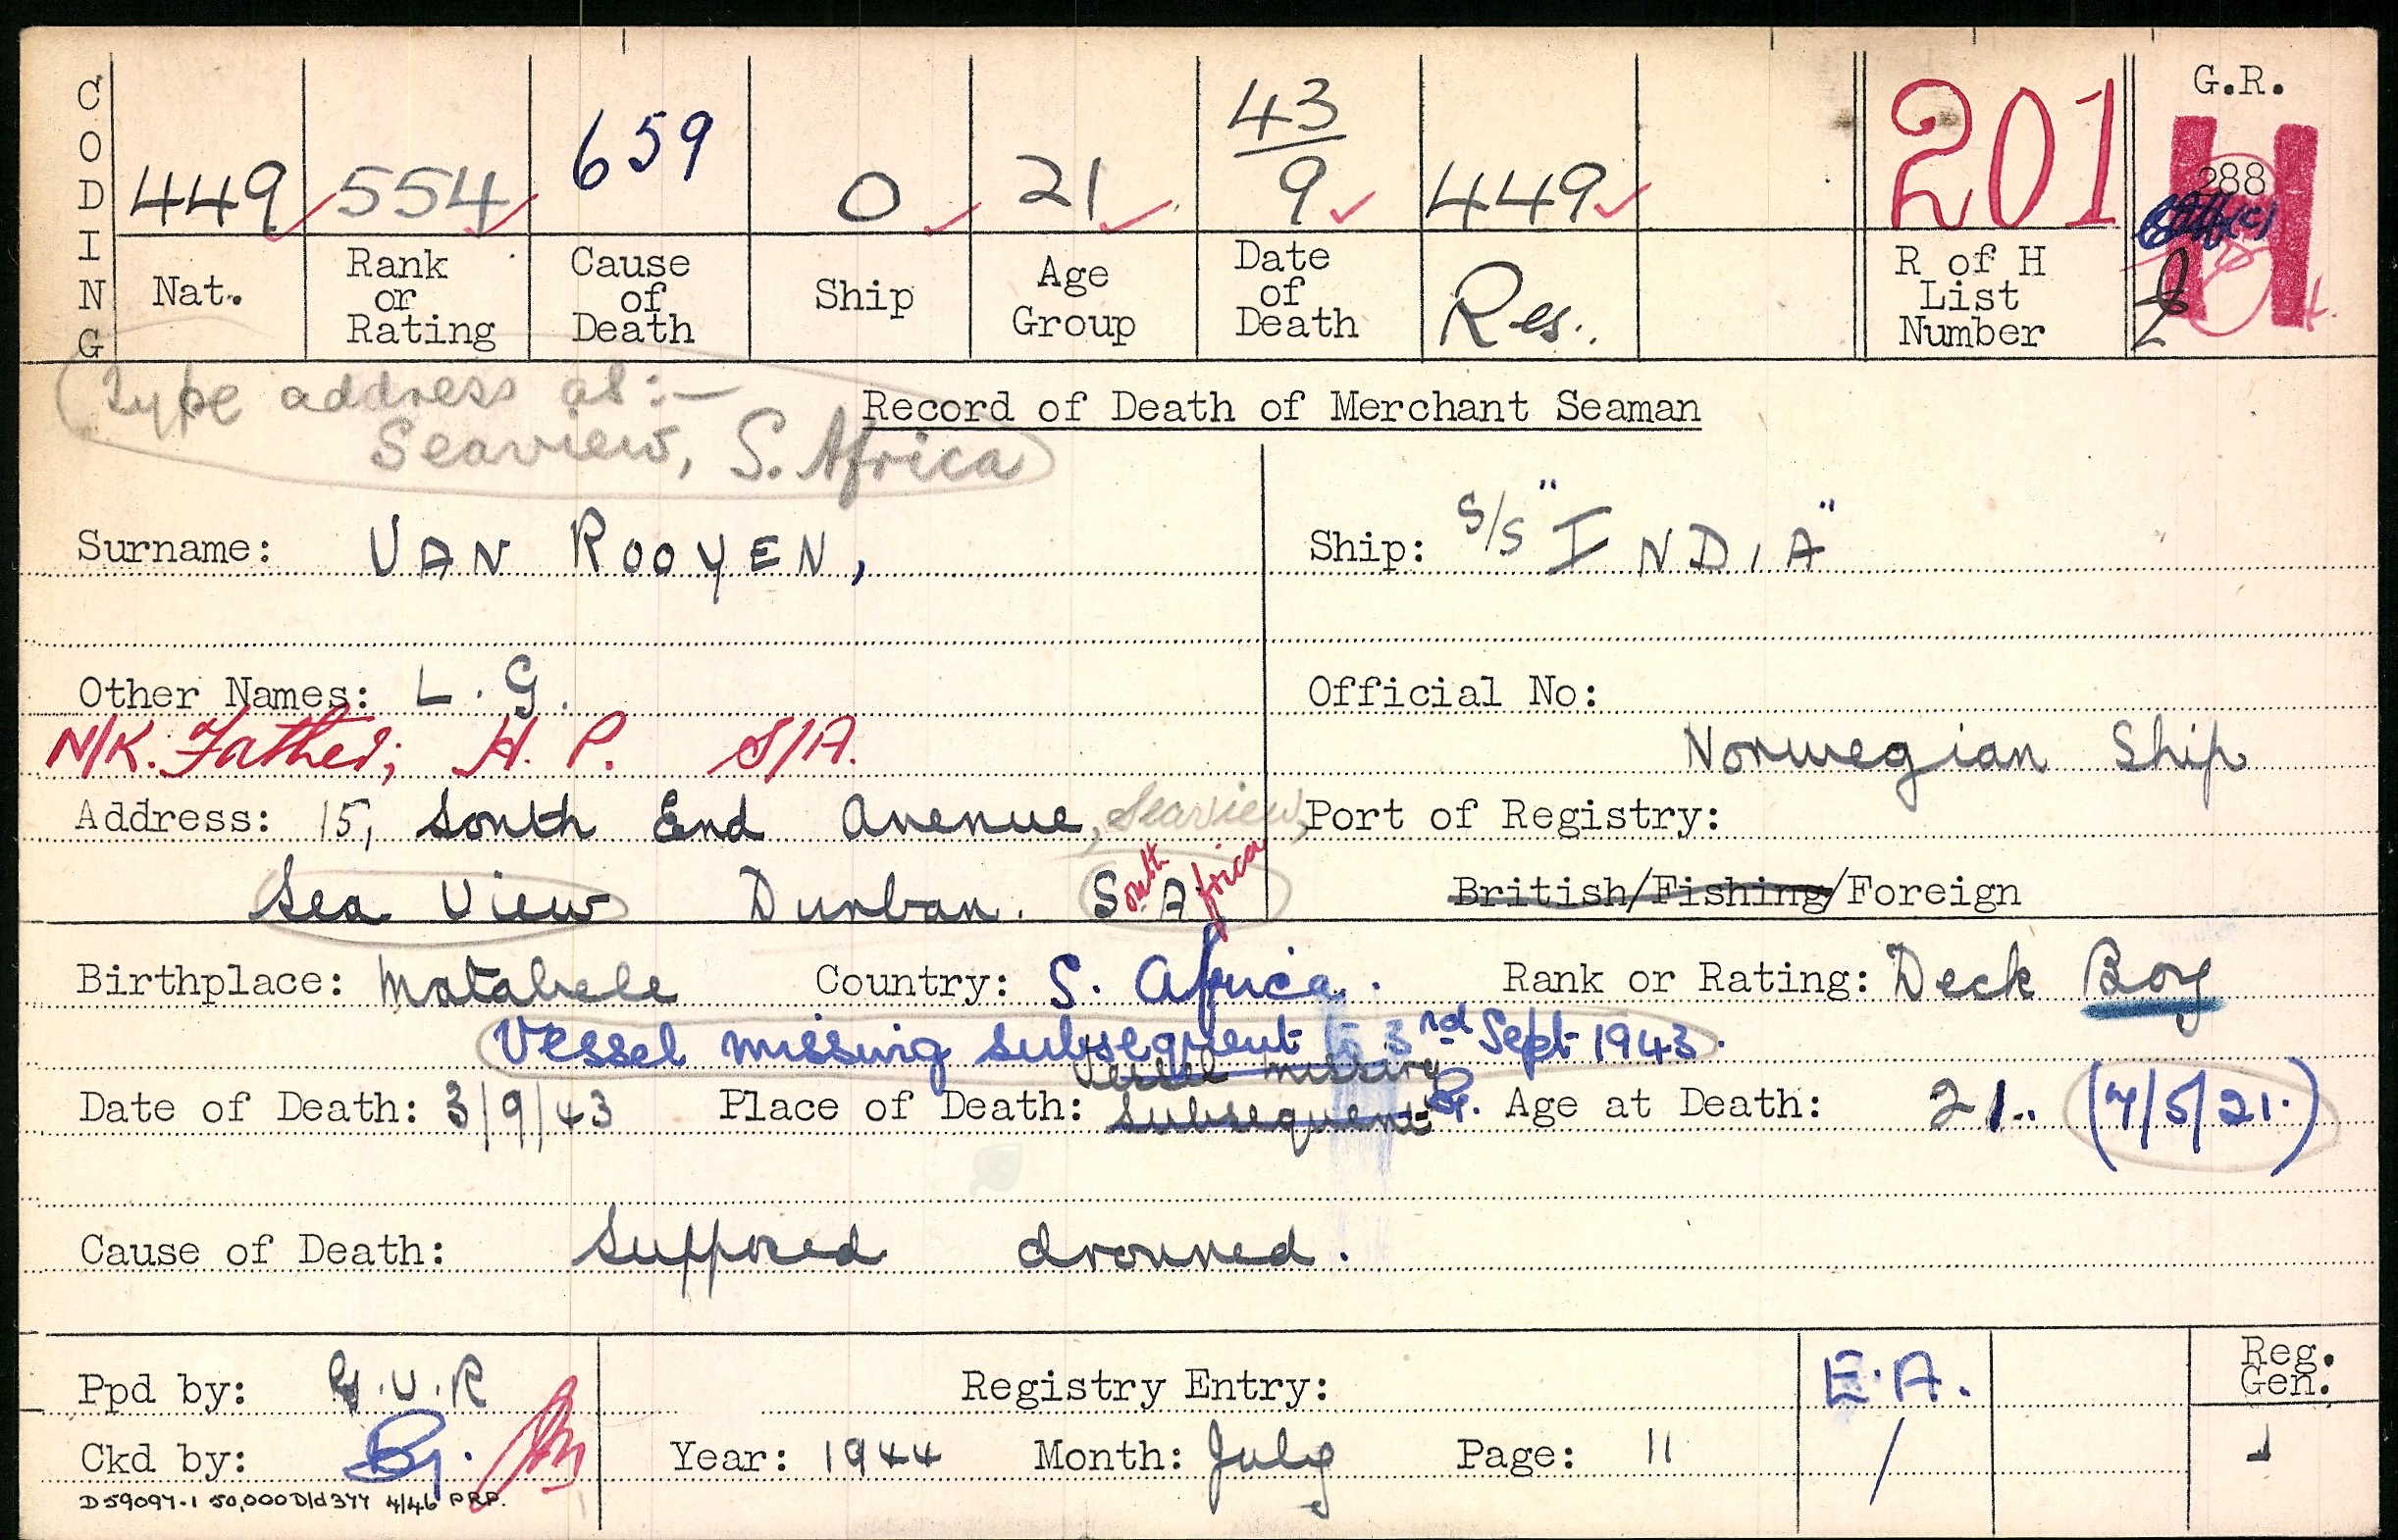 CODING
449 554 659 0 21 43/9 449 201 G.R.
288
Nat. Rank or Rating Cause of Death Ship Age Group Date of Death Res. R of H List Number
Type address as:-
Seaview, S. Africa
Record of Death of Merchant Seaman
Surname: VAN ROOYEN, Ship: S/S "INDIA"
Other Names: L. G. Official No:
N/K. Father; H. P. S/A. Norwegian Ship
Address: 15, South End Avenue, Seaview, Port of Registry:
Sea View Durban. South Africa British/Fishing/Foreign
Birthplace: Matabele Country: S. Africa. Rank or Rating: Deck Boy
Vessel missing subsequent to 3rd Sept 1943.
Vessel missing
Date of Death: 3/9/43 Place of Death: subsequent Age at Death: 21. (7/5/21.)
Cause of Death: Supposed drowned.
Ppd by: G.V.R Registry Entry: E.A. Reg. Gen.
Ckd by: Year: 1944 Month: July Page: 11 /
D59097-1 50,000 D/d 377 4/46 P.R.P.